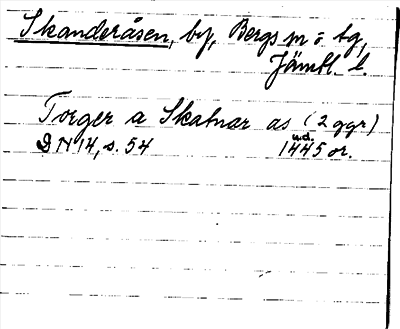 Skanderåsen, by, Bergs sn o. tg,
Jämtl. l.
Torger a Skatnar as (2 ggr)
u.d.
DN 14, s. 54 1445 or.